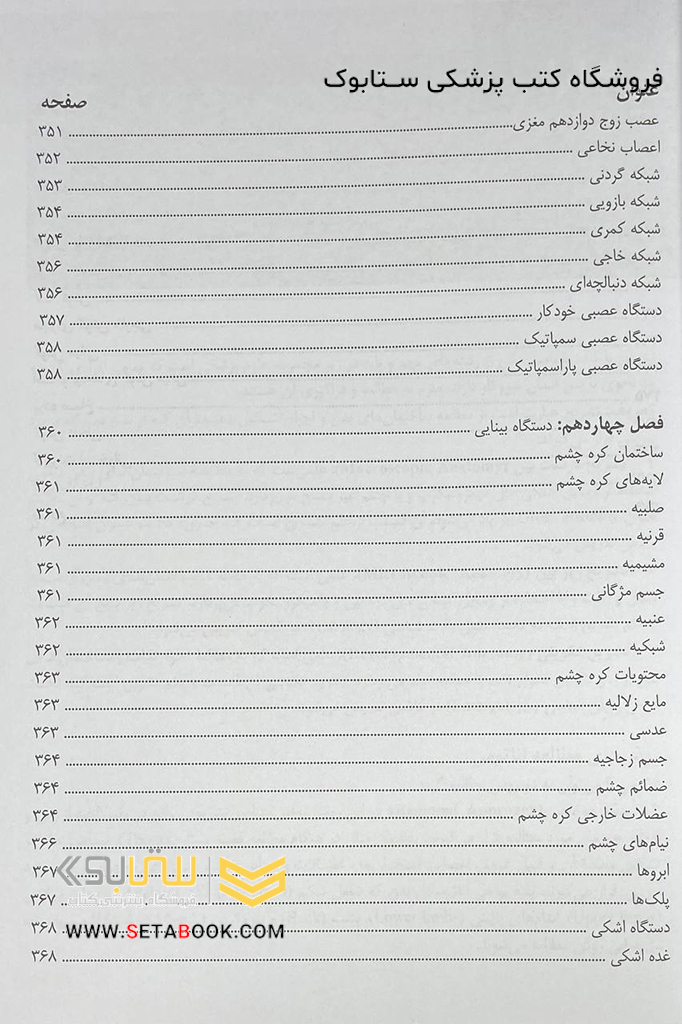 فروشگاه کتب پزشکی ستابوک
عنوان صفحه
عصب زوج دوازدهم مغزی ۳۵۱
اعصاب نخاعی ۳۵۲
شبکه گردنی ۳۵۳
شبکه بازویی ۳۵۴
شبکه کمری ۳۵۴
شبکه خاجی ۳۵۶
شبکه دنبالچه‌ای ۳۵۶
دستگاه عصبی خودکار ۳۵۷
دستگاه عصبی سمپاتیک ۳۵۸
دستگاه عصبی پاراسمپاتیک ۳۵۸
فصل چهاردهم: دستگاه بینایی ۳۶۰
ساختمان کره چشم ۳۶۰
لایه‌های کره چشم ۳۶۱
صلبیه ۳۶۱
قرنیه ۳۶۱
مشیمیه ۳۶۱
جسم مژگانی ۳۶۱
عنبیه ۳۶۲
شبکیه ۳۶۲
محتویات کره چشم ۳۶۳
مایع زلالیه ۳۶۳
عدسی ۳۶۳
جسم زجاجیه ۳۶۴
ضمائم چشم ۳۶۴
عضلات خارجی کره چشم ۳۶۴
نیام‌های چشم ۳۶۶
ابروها ۳۶۷
پلک‌ها ۳۶۷
دستگاه اشکی ۳۶۸
غده اشکی ۳۶۸
ستابوک
فروشگاه اینترنتی کتاب
WWW.SETABOOK.COM